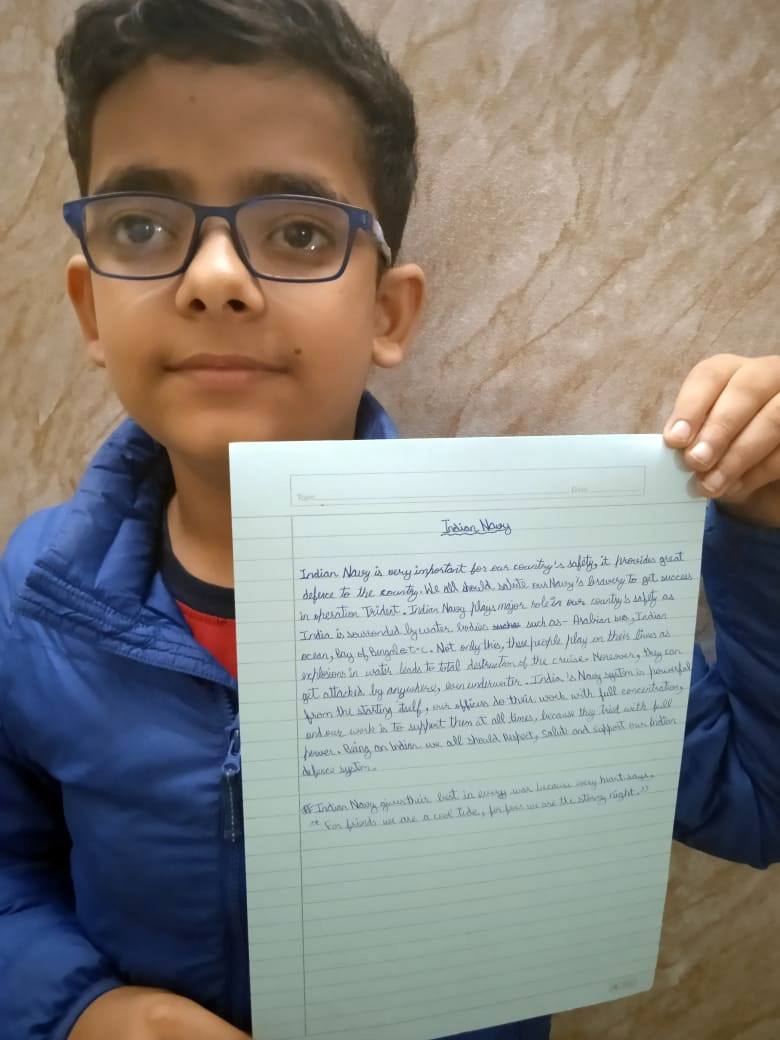 Topic Date
Indian Navy
Indian Navy is very important for our country's safety, it provides great
defence to the country. We all should salute our Navy's bravery to get success
in operation Trident. Indian Navy plays major role in our country's safety as
India is sourronded by water bodies such as - Arabian sea, Indian
ocean, bay of Bengal e.t.c. Not only this, these people play on their lives as
explosions in water leads to total destruction of the cruise. Moreover, they can
get attacked by anywhere, even underwater. India's Navy system is powerful
from the starting itself, our officers do their work with full concentration,
and our work is to support them at all times, because they tried with full
power. Being an Indian we all should respect, salute and support our Indian
defence system.
# Indian Navy gives their best in every war because every heart says.
"For friends we are a cool tide, for foes we are the strong might."